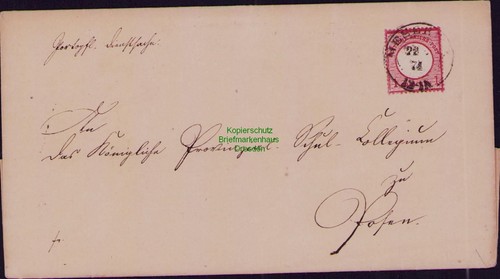 Portopfl. Dienstsache.
22
74
An
Kopierschutz
das Königliche Provinzial-Schul-Collegium
Briefmarkenhaus
Dresden
zu
Posen.
fr